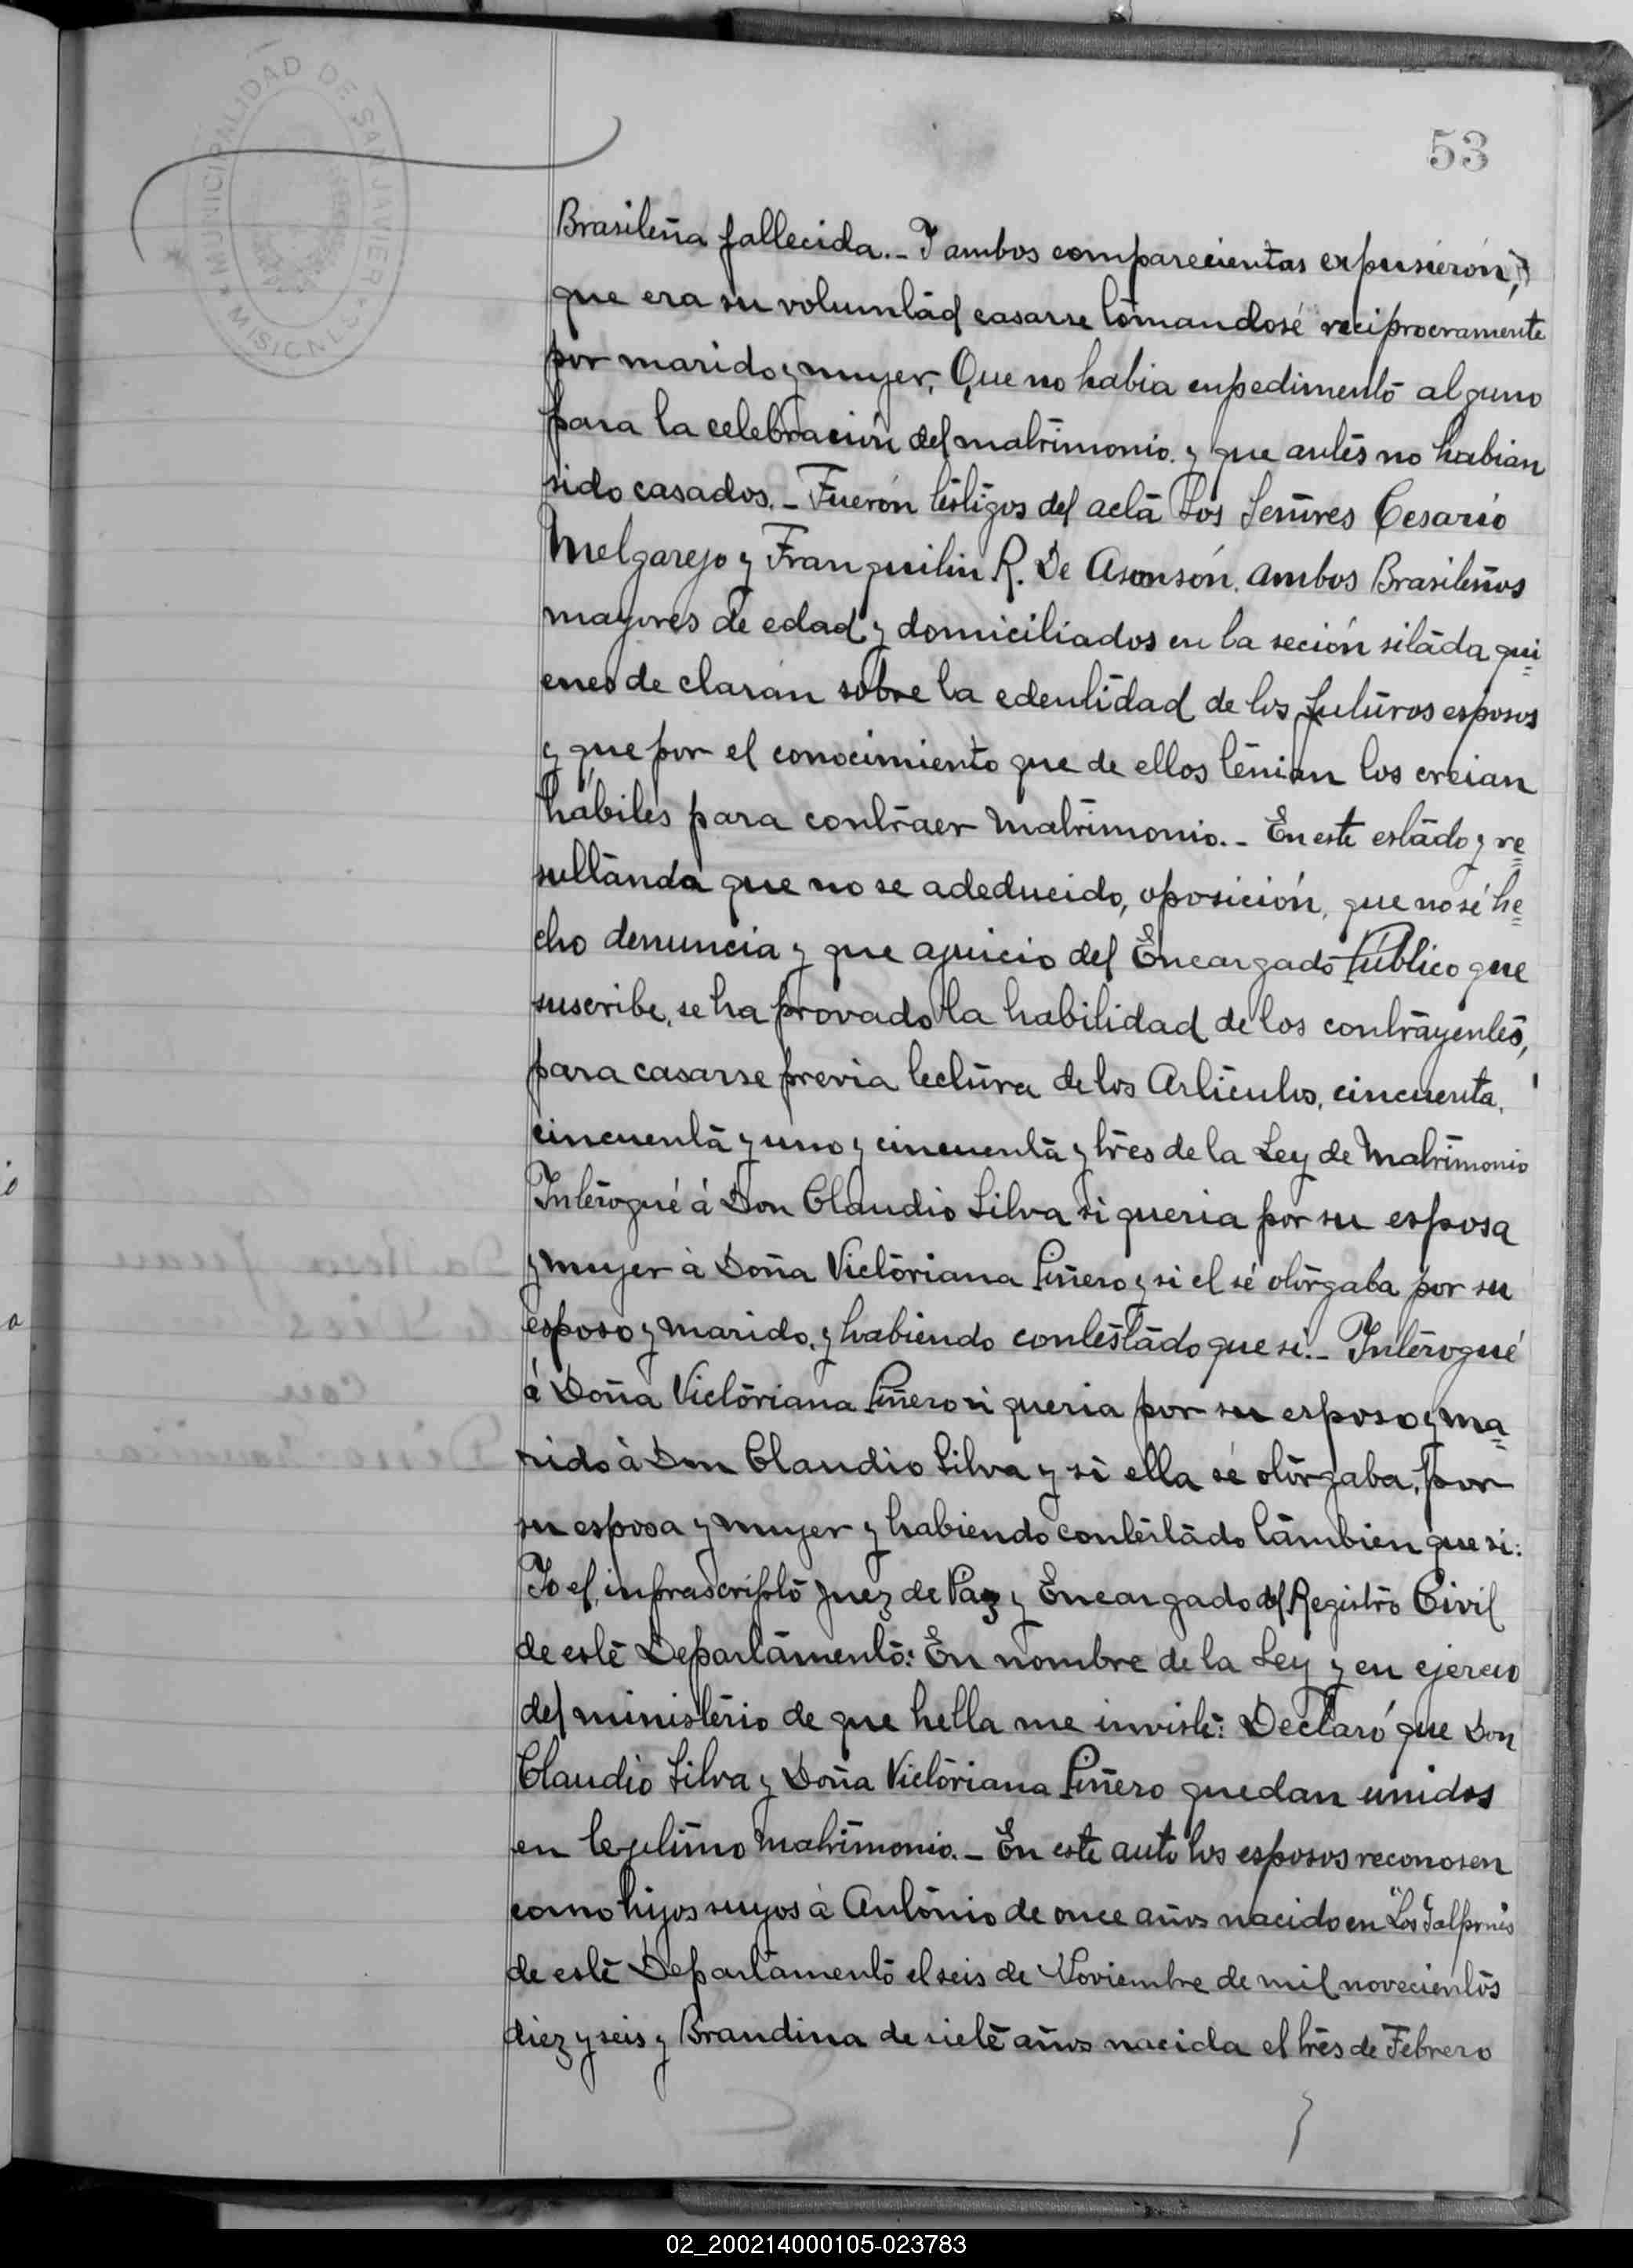 MUNICIPALIDAD DE SAN JAVIER
MISIONES
53
Brasileña fallecida.- I ambos comparecientas expusierón,
que era su volumtad casarse tomandosé reciprocramente
por marido y muyer, Que no habia enpedimento alguno
para la celebración del matrimonio. y que antes no habian
sido casados.- Fuerón testigos del acta Los Señores Cesario
Melgarejo y Franquilin R. De Asonsón. ambos Brasileños
mayores de edad y domiciliados en la seción sitada qui=
enes de claran sobre la edentidad de los futuros esposos
y que por el conocimiento que de ellos tenian los creian
habiles para contraer Matrimonio.- En este estado y re=
sultanda que no se adeducido, oposición, que no sé he=
cho denuncia y que ajuicio del Encargado Público que
suscribe, se ha provado la habilidad de los contrayentes,
para casarse previa lectura de los Articulos, cincuenta,
cincuenta y uno y cincuenta y tres de la Ley de Matrimonio
Interogué á Don Claudio Silva si queria por su esposa
y muyer à Doña Victoriana Piñero y si el sé otorgaba por su
esposo y marido, y habiendo contestado que si.- Interogué
á Doña Victoriana Piñero si queria por su esposo y ma=
rido à Don Claudio Silva y si ella sé otorgaba, por
su esposa y muyer y habiendo contestado tambien que si:
Yo el, infrascripto Juez de Paz y Encargado del Registro Civil
de este Departamento: En nombre de la Ley y en ejercio
del ministerio de que hella me inviste: Declaró que Don
Claudio Silva y Doña Victoriana Piñero quedan unidos
en lejitimo Matrimonio.- En este auto los esposos reconosen
como hijos suyos à Antonio de once años nacido en "Los Galpones
de este Departamento el seis de Noviembre de mil novecientos
diez y seis y Brandina de siete años nacida el tres de Febrero
02_200214000105-023783